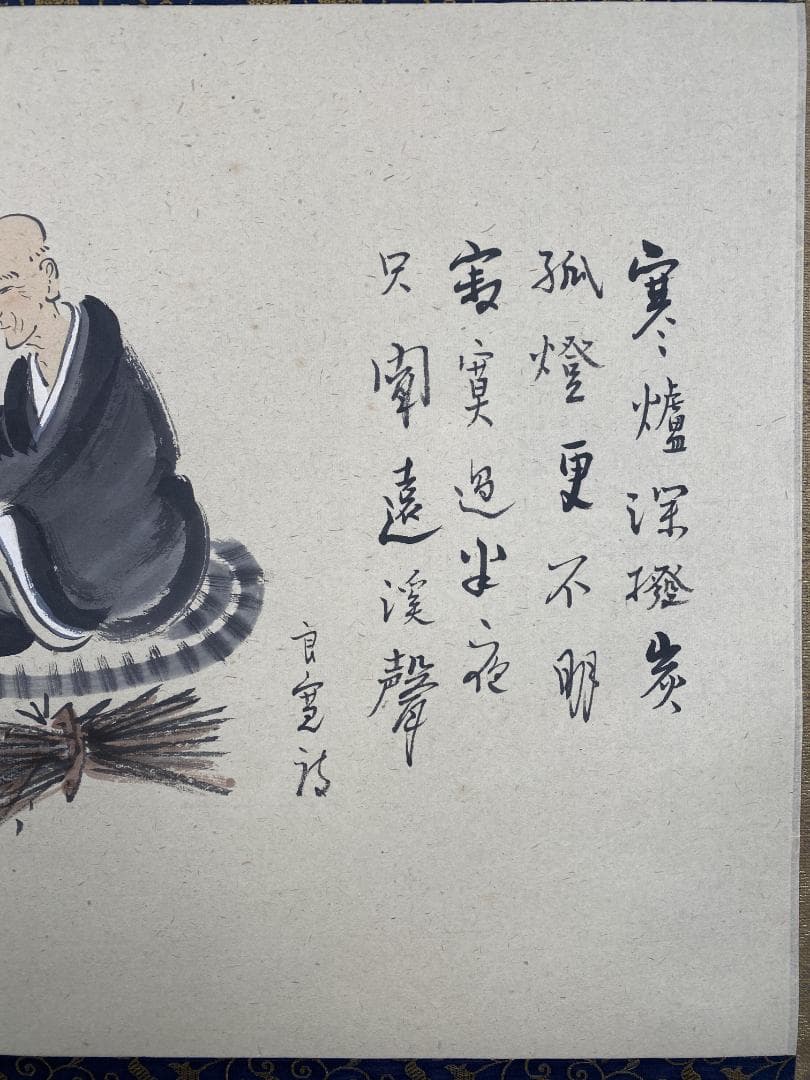 寒爐深撥炭
孤燈更不明
寂寞過半夜
只聞遠溪聲
良寛詩